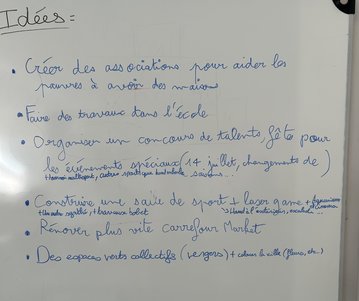 Idées =
• Créer des associations pour aider les
pauvres à avoir des maison
• Faire des travaux dans l'école
• Organiser un concours de talents, fête pour
les événements spéciaux (14 juillet, changements de
saisons...)
• Construire une salle de sport + laser game +
+ travaux
• Rénover plus vite Carrefour Market
• Des espaces verts collectifs (vergers) + colorer la ville (fleurs, etc..)